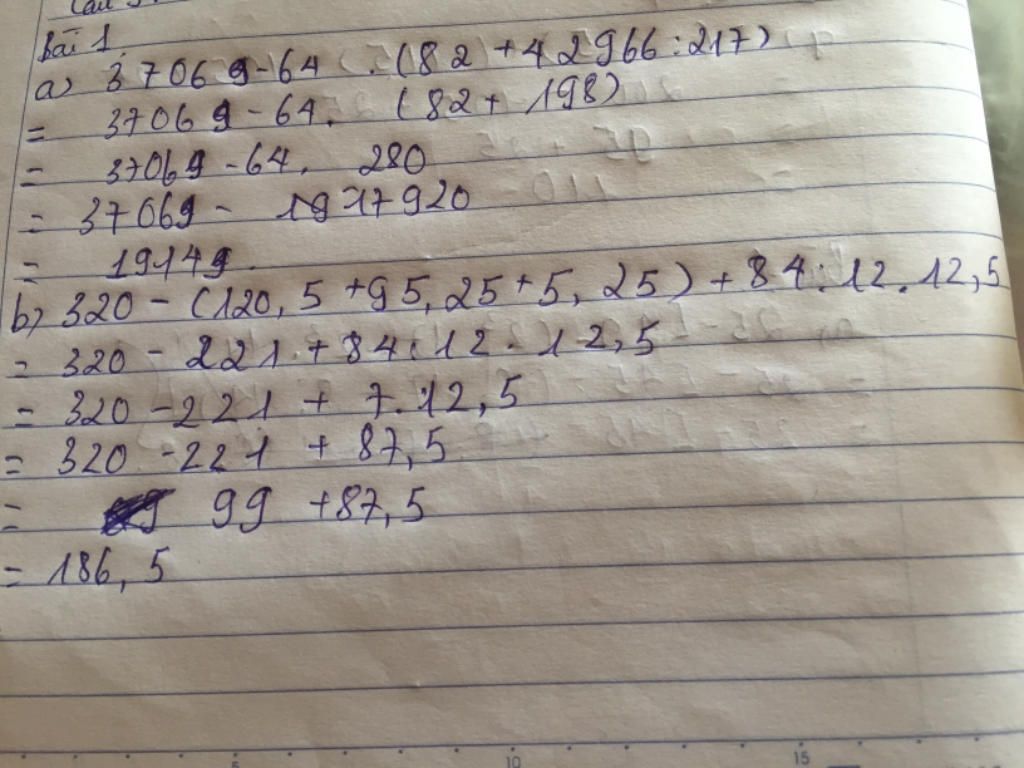 Bài 1.
a) 37069-64 . (82 + 42966:217)
= 37069-64. (82+ 198)
= 37069-64. 280
= 37069- 17920
= 19149.
b) 320 - (120,5 +95,25 +5, 25) + 84:12.12,5
= 320 - 221 + 84:12. 12,5
= 320 -221 + 7.12,5
= 320 -221 + 87,5
= 99 +87,5
= 186, 5
5 10 15